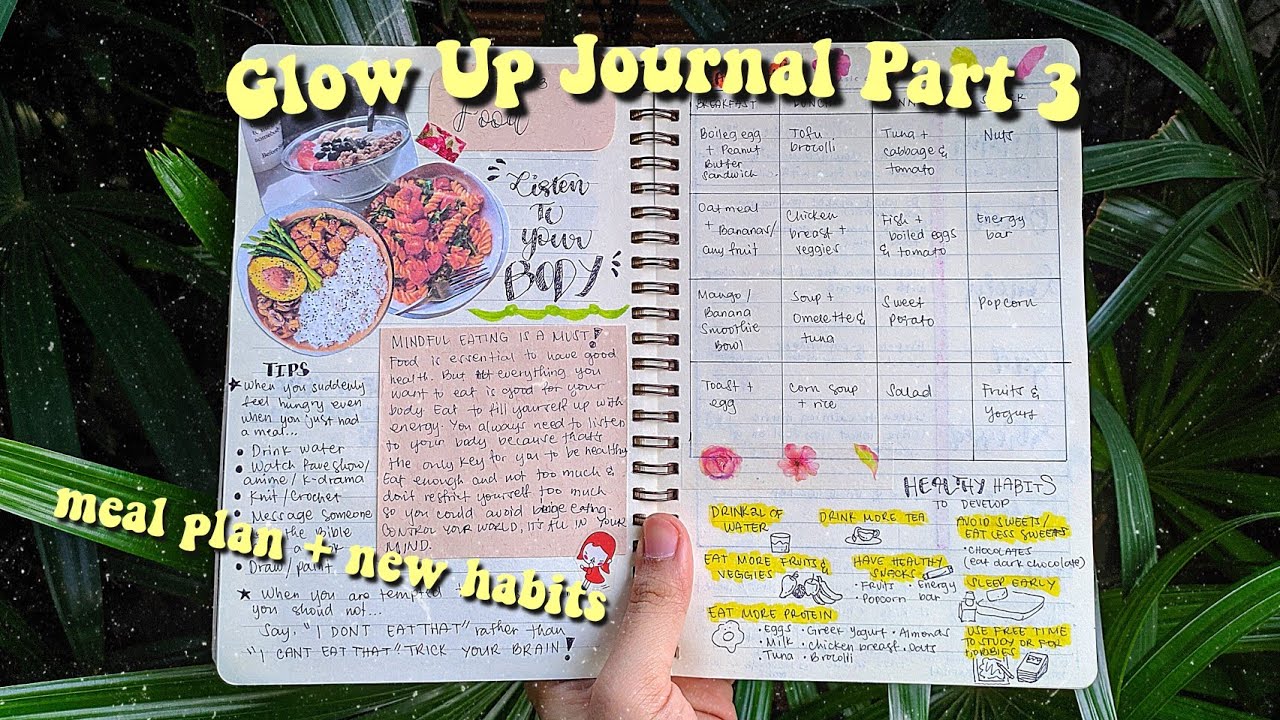 Glow Up Journal Part 3
meal plan + new habits
Food
"Listen
TO
your
BODY"
MINDFUL EATING IS A MUST!
Food is essential to have good
health. But everything you
want to eat is good for your
body. Eat to fill yourself up with
energy. You always need to listen
to your body because that's
the only key for you to be healthy
Eat enough and not too much &
don't restrict yourself too much
so you could avoid binge eating.
CONTROL YOUR WORLD, IT'S ALL IN YOUR
MIND.
TIPS
★ When you suddenly
feel hungry even
when you just had
a meal...
• Drink water
• Watch fave show/
anime / k-drama
• Knit / Crochet
• Message someone
the bible
• Draw / paint
★ When you are tempted
you should not...
Say. "I DON'T EAT THAT" rather than
"I CAN'T EAT THAT" TRICK YOUR BRAIN!
BREAKFAST
Boiled egg
+ Peanut
Butter
Sandwich
Tofu
brocolli
Tuna +
cabbage &
tomato
Nuts
Oatmeal
+ Bananas/
any fruit
Chicken
breast +
veggies
Fish +
boiled eggs
& tomato
Energy
bar
Mango /
Banana
Smoothie
Bowl
Soup +
Omelette &
tuna
Sweet
Potato
Popcorn
Toast +
egg
Corn soup
+ rice
Salad
Fruits &
yogurt
HEALTHY HABITS
TO DEVELOP
DRINK 2L OF
WATER
DRINK MORE TEA
AVOID SWEETS/
EAT LESS SWEETS
• CHOCOLATES
(eat dark chocolate)
EAT MORE FRUITS &
VEGGIES
HAVE HEALTHY
SNACKS
• FRUIT • Energy
• Popcorn bar
SLEEP EARLY
EAT MORE PROTEIN
• Eggs • Greek Yogurt • Almonds
• Milk • Chicken breast • Oats
• Tuna • Brocolli
USE FREE TIME
TO STUDY OR FOR
HOBBIES